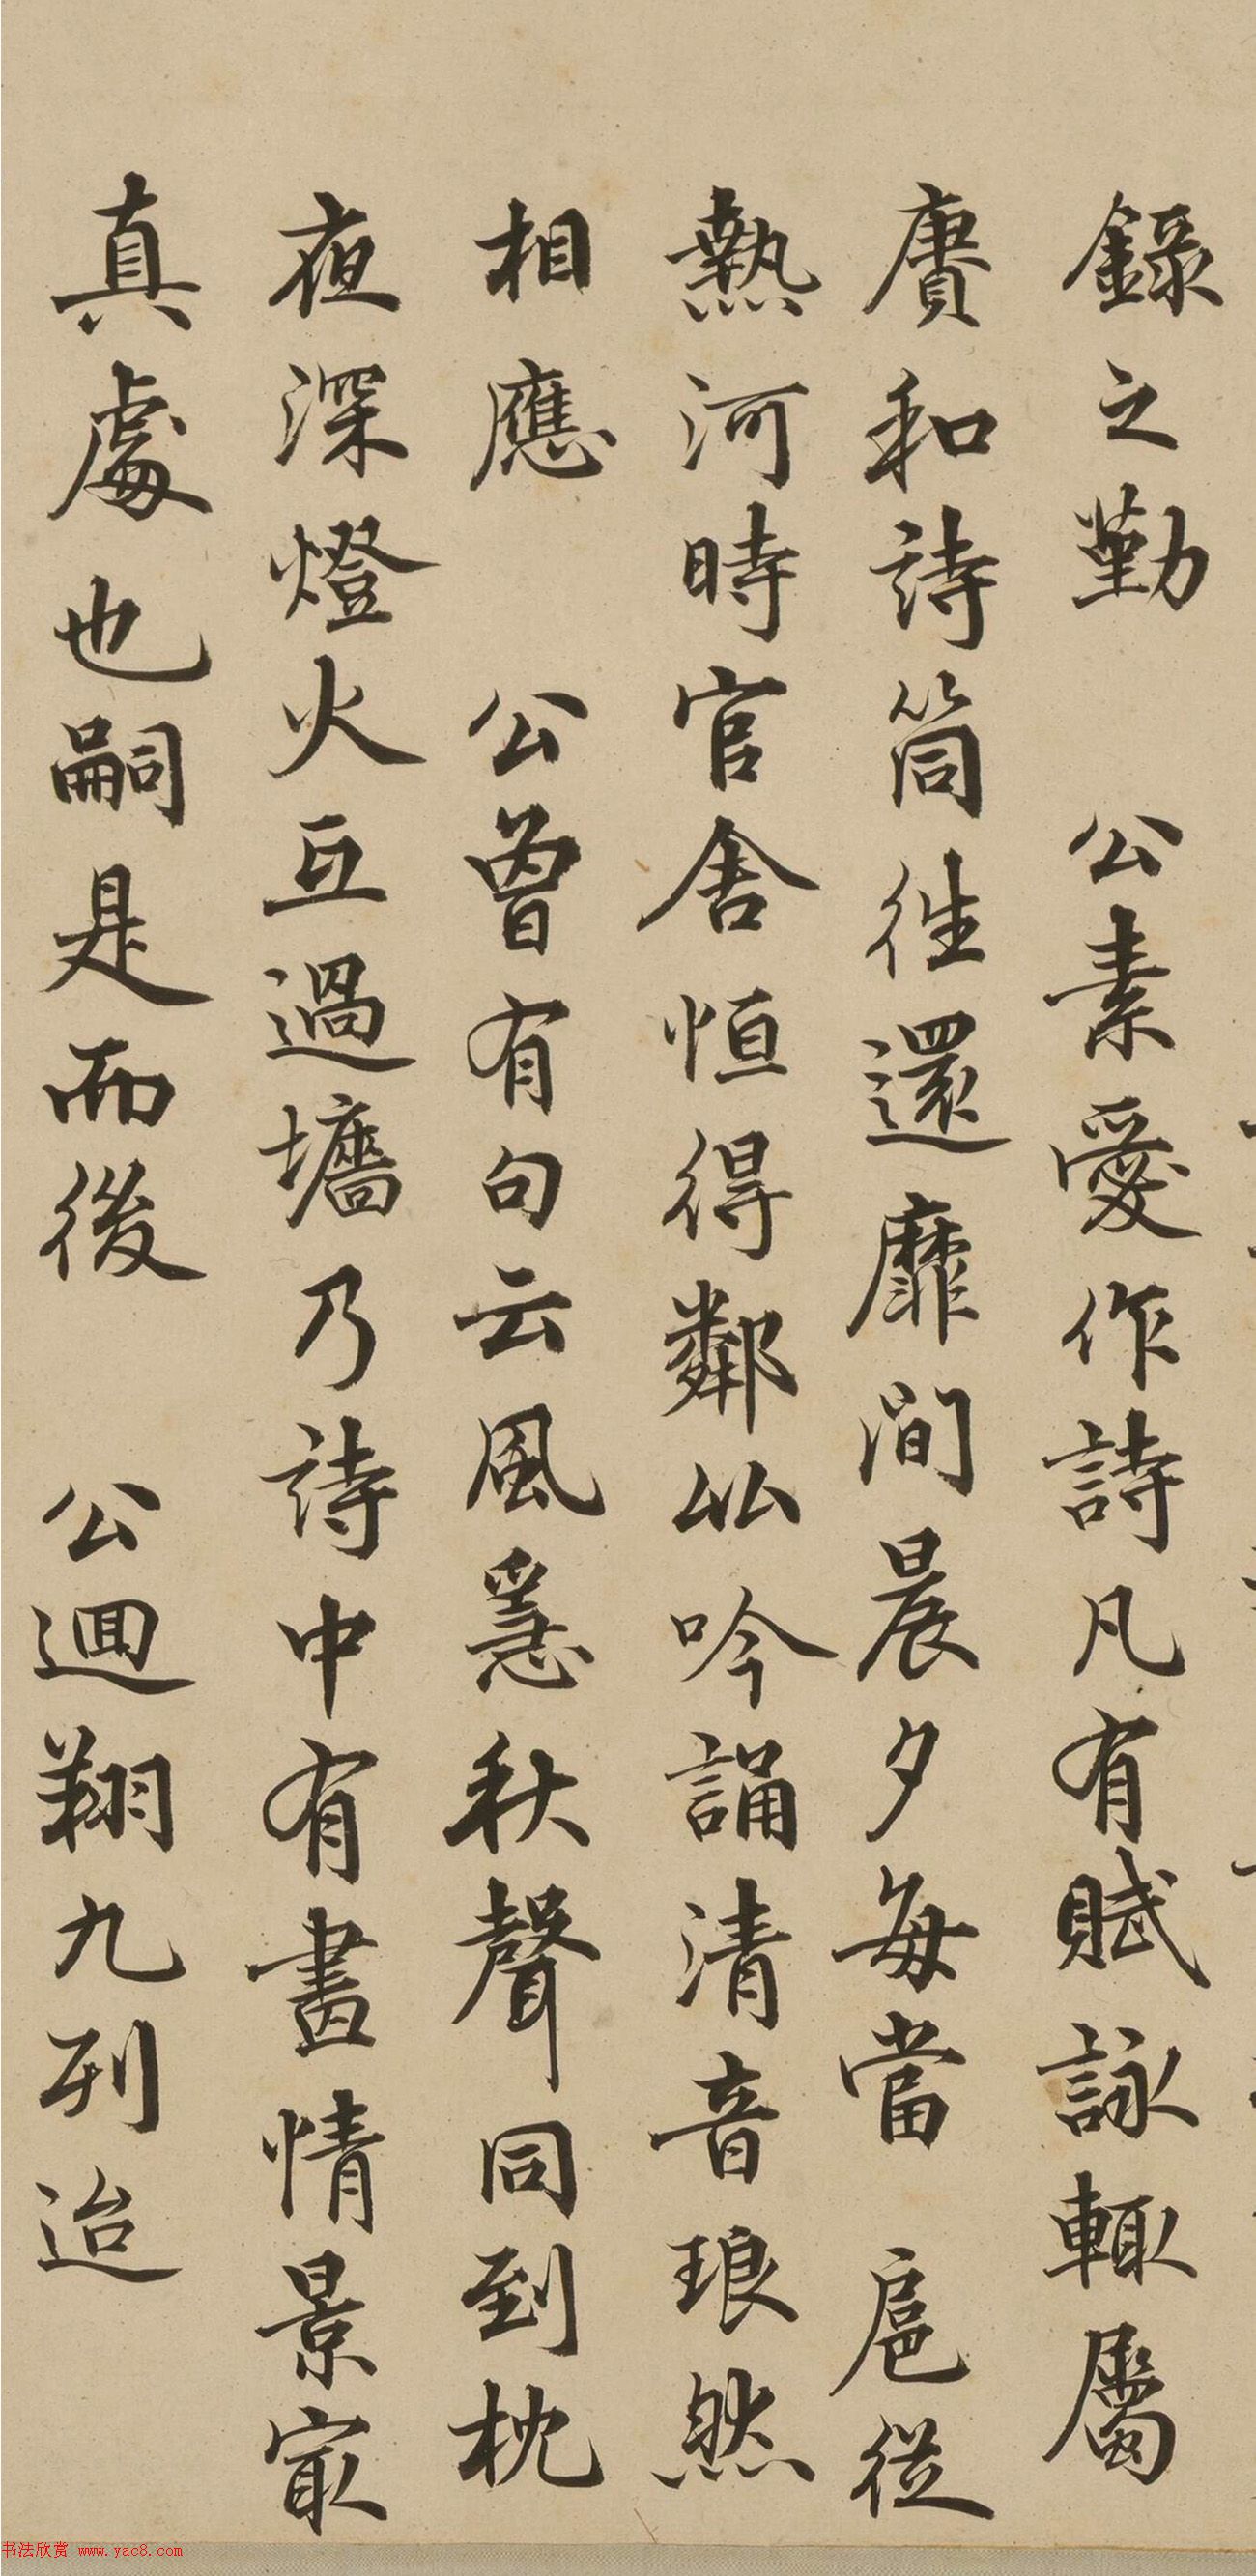 錄之勤　公素愛作詩凡有賦詠輒屬
賡和詩筒往還靡間晨夕每當　扈從
熱河時官舍恒得鄰比吟誦清音琅然
相應　公曾有句云風急秋聲同到枕
夜深燈火互過墻乃詩中有畫情景㝡
真處也嗣是而後　公迴翔九列迨
书法欣赏 www.yac8.com